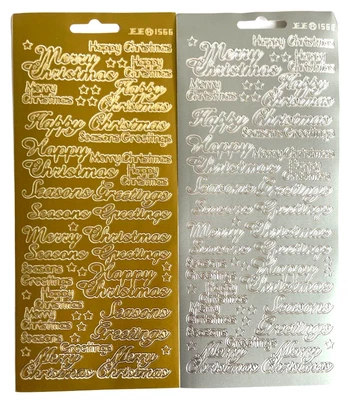 JEJE ® 1566
Happy Christmas
Merry
Christmas
Merry
Christmas
Happy
Christmas
Happy Christmas
Seasons Greetings
Happy
Christmas
Merry Christmas
Happy
Christmas
Seasons Greetings
Seasons Greetings
Merry Christmas
Seasons Greetings
Seasons
Greetings
Happy
Christmas
Happy
Christmas
Merry
Christmas
Seasons
Greetings
Seasons
Greetings
Merry
Christmas
Merry
Christmas
1566
Happy Christmas
Merry
Christmas
Merry
Christmas
Happy
Christmas
Happy Christmas
Seasons Greetings
Happy
Christmas
Merry Christmas
Seasons Greetings
Seasons Greetings
Merry Christmas
Seasons Greetings
Happy
Christmas
Seasons
Greetings
Merry
Christmas
Merry
Christmas